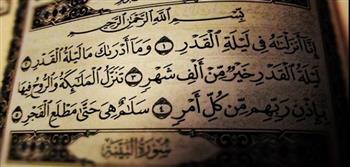 بِسْمِ اللَّهِ الرَّحْمَٰنِ الرَّحِيمِ
إِنَّا أَنزَلْنَٰهُ فِى لَيْلَةِ الْقَدْرِ ١ وَمَا أَدْرَىٰكَ مَا لَيْلَةُ الْقَدْرِ ٢
لَيْلَةُ الْقَدْرِ خَيْرٌ مِّنْ أَلْفِ شَهْرٍ ٣ تَنَزَّلُ الْمَلَٰٓئِكَةُ وَالرُّوحُ فِيهَا
بِإِذْنِ رَبِّهِم مِّن كُلِّ أَمْرٍ ٤ سَلَٰمٌ هِىَ حَتَّىٰ مَطْلَعِ الْفَجْرِ ٥
سُورَةُ الْبَيِّنَةِ